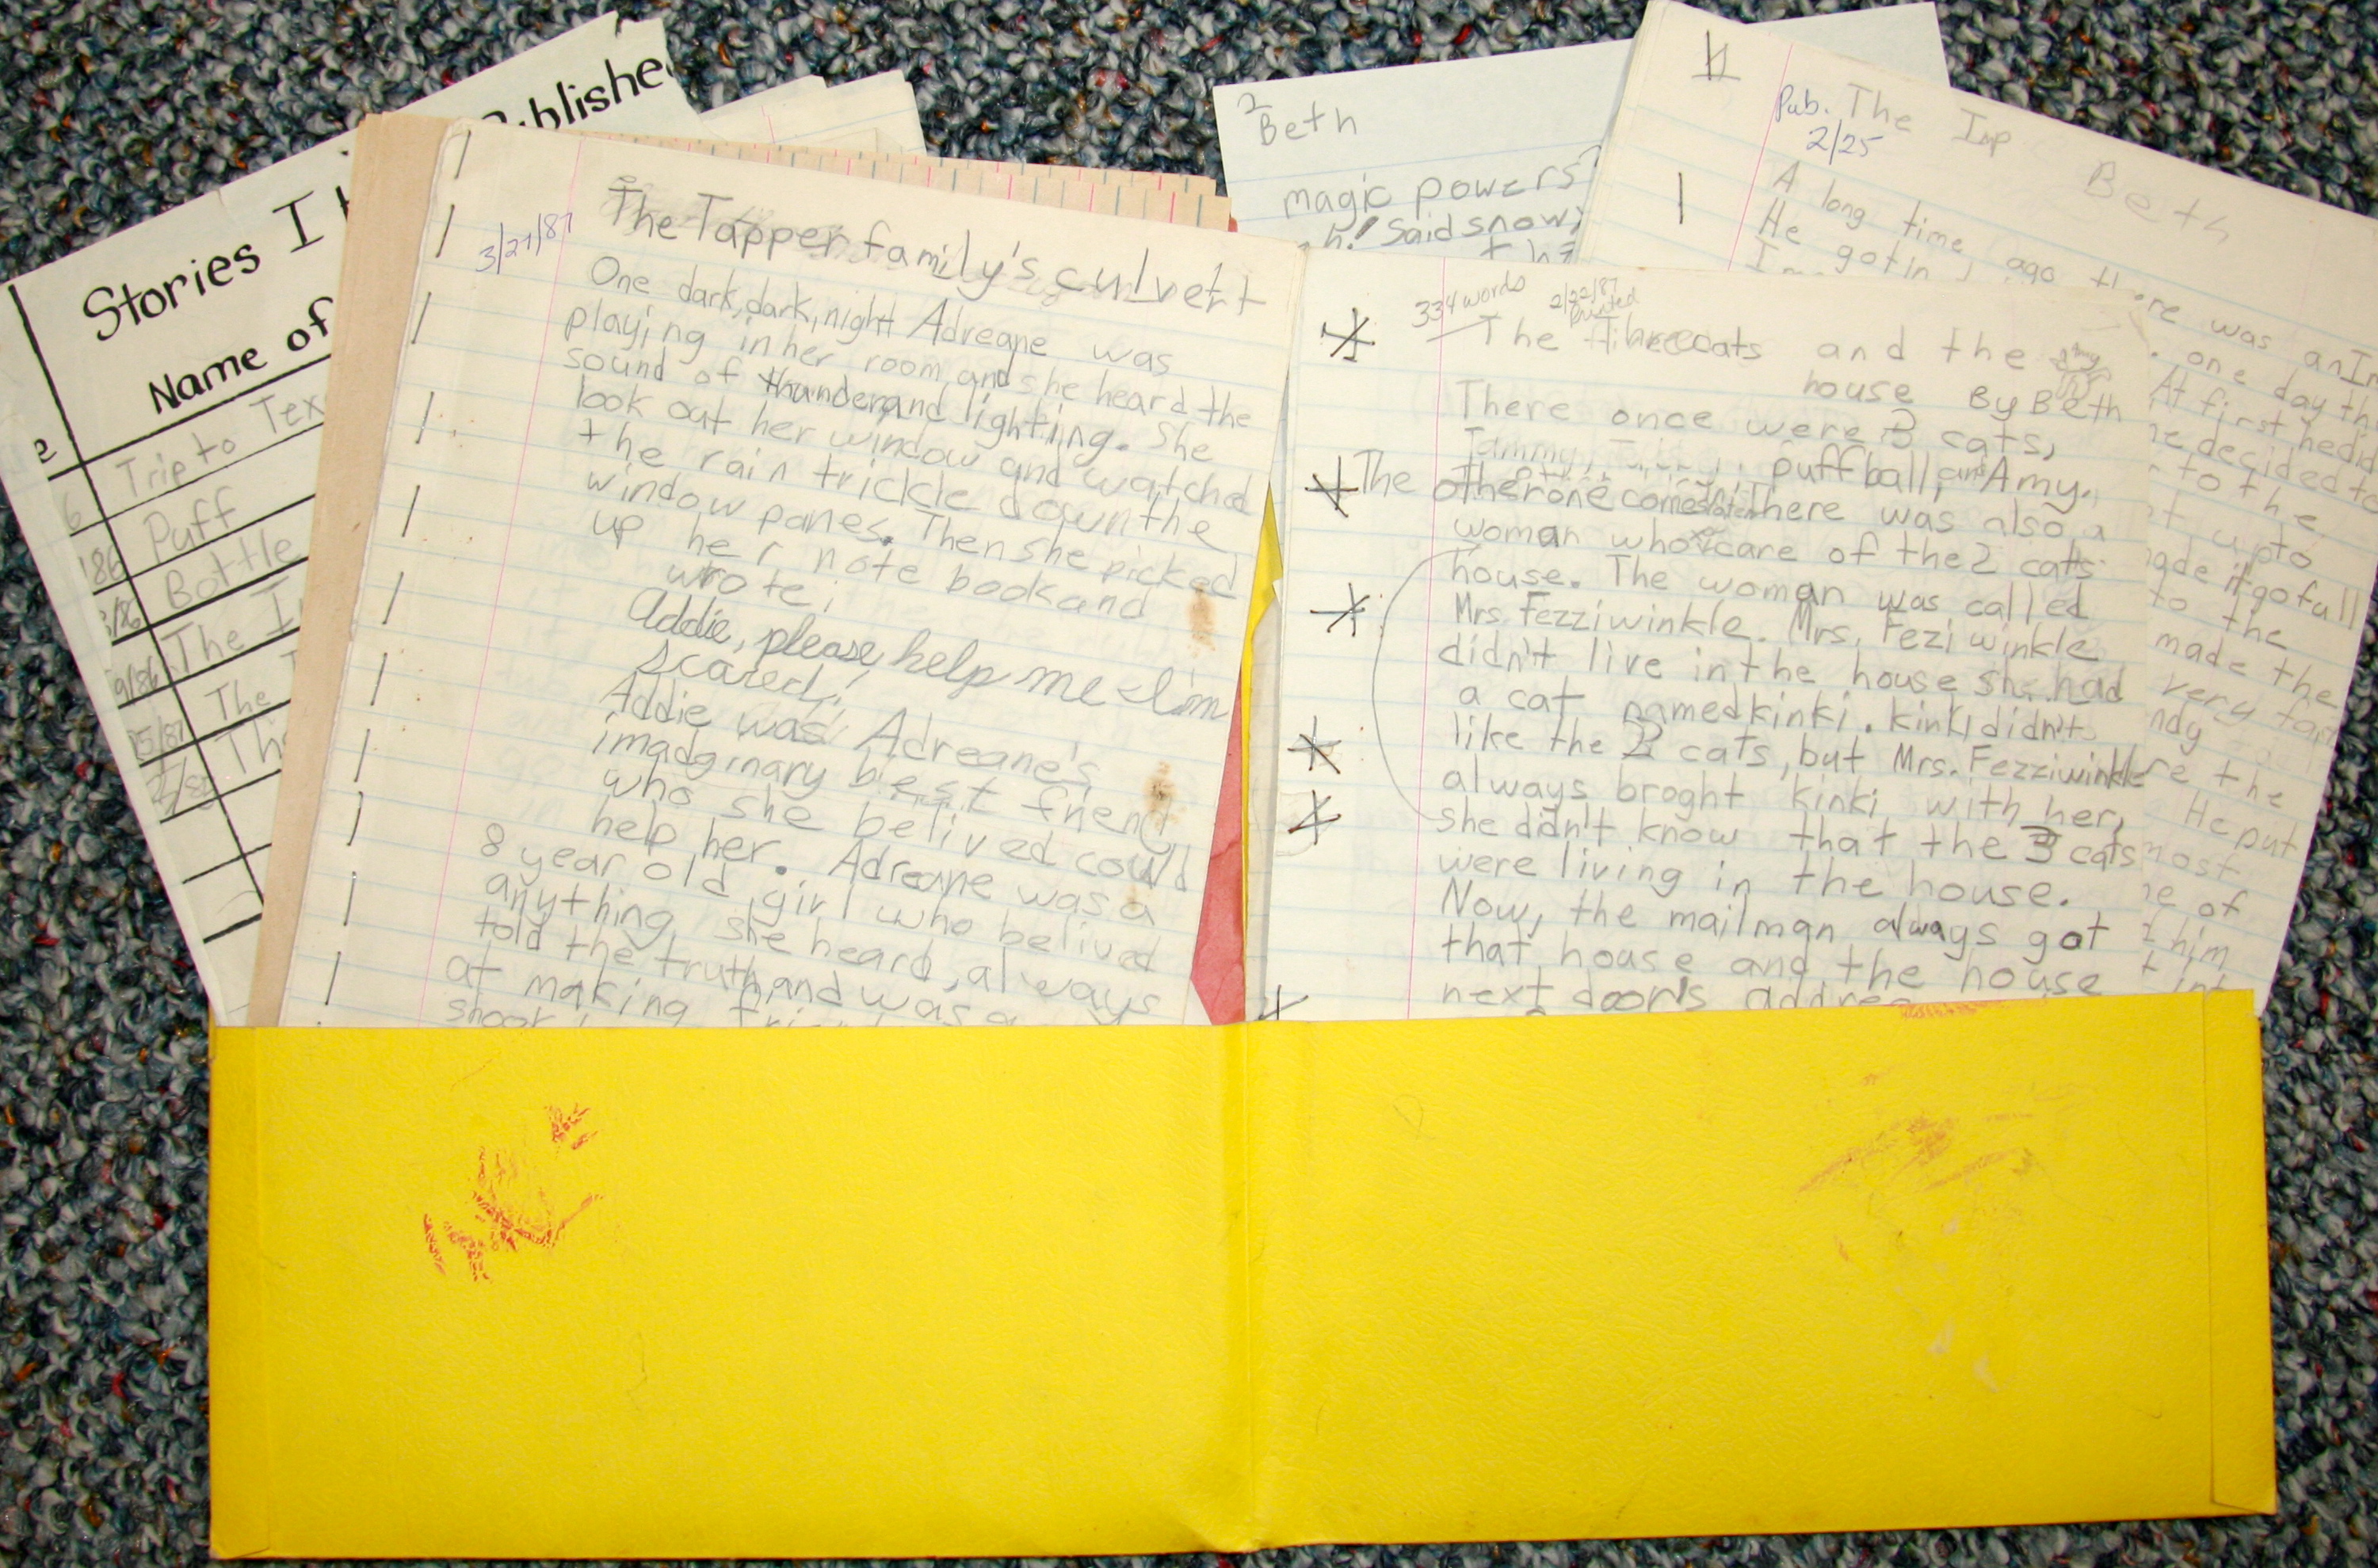 Stories I
Published
Name of
Trip to Tex
6
Puff
'86
Bottle
/86
The I
9/86
The
5/87
The
The Tapper family's culvert
3/27/87
One dark, dark, night Adreane was
playing in her room, and she heard the
sound of thunder and lighting. She
look out her window and watched
the rain trickle down the
window panes. Then she picked
up her note book and
wrote;
Addie, please, help me I'm
scared!
Addie was Adreane's
imadginary best friend
who she belived could
help her. Adreane was a
8 year old girl who belived
anything she heard, always
told the truth, and was a
at making
2
Beth
magic powers?
h! Said snow
Pub. The Imp Beth
2/25
A long time ago there was an Im
He got in one day th
At first he did
he decided to
to the
up to
made it go full
to the
made the
very fair
ndy
re the
He put
most
ne of
him
t int
334 words 2/22/87
Printed
The Three cats and the
house By Beth
There once were 3 cats,
puffball, and Amy.
The other one comes later There was also a
woman who care of the 2 cats
house. The woman was called
Mrs. Fezziwinkle. Mrs. Feziwinkle
didn't live in the house she had
a cat named kinki. kinki didn't
like the 3 cats, but Mrs. Fezziwinkle
always broght kinki with her,
she didn't know that the 3 cats
were living in the house.
Now, the mailman always got
that house and the house
next door's addres